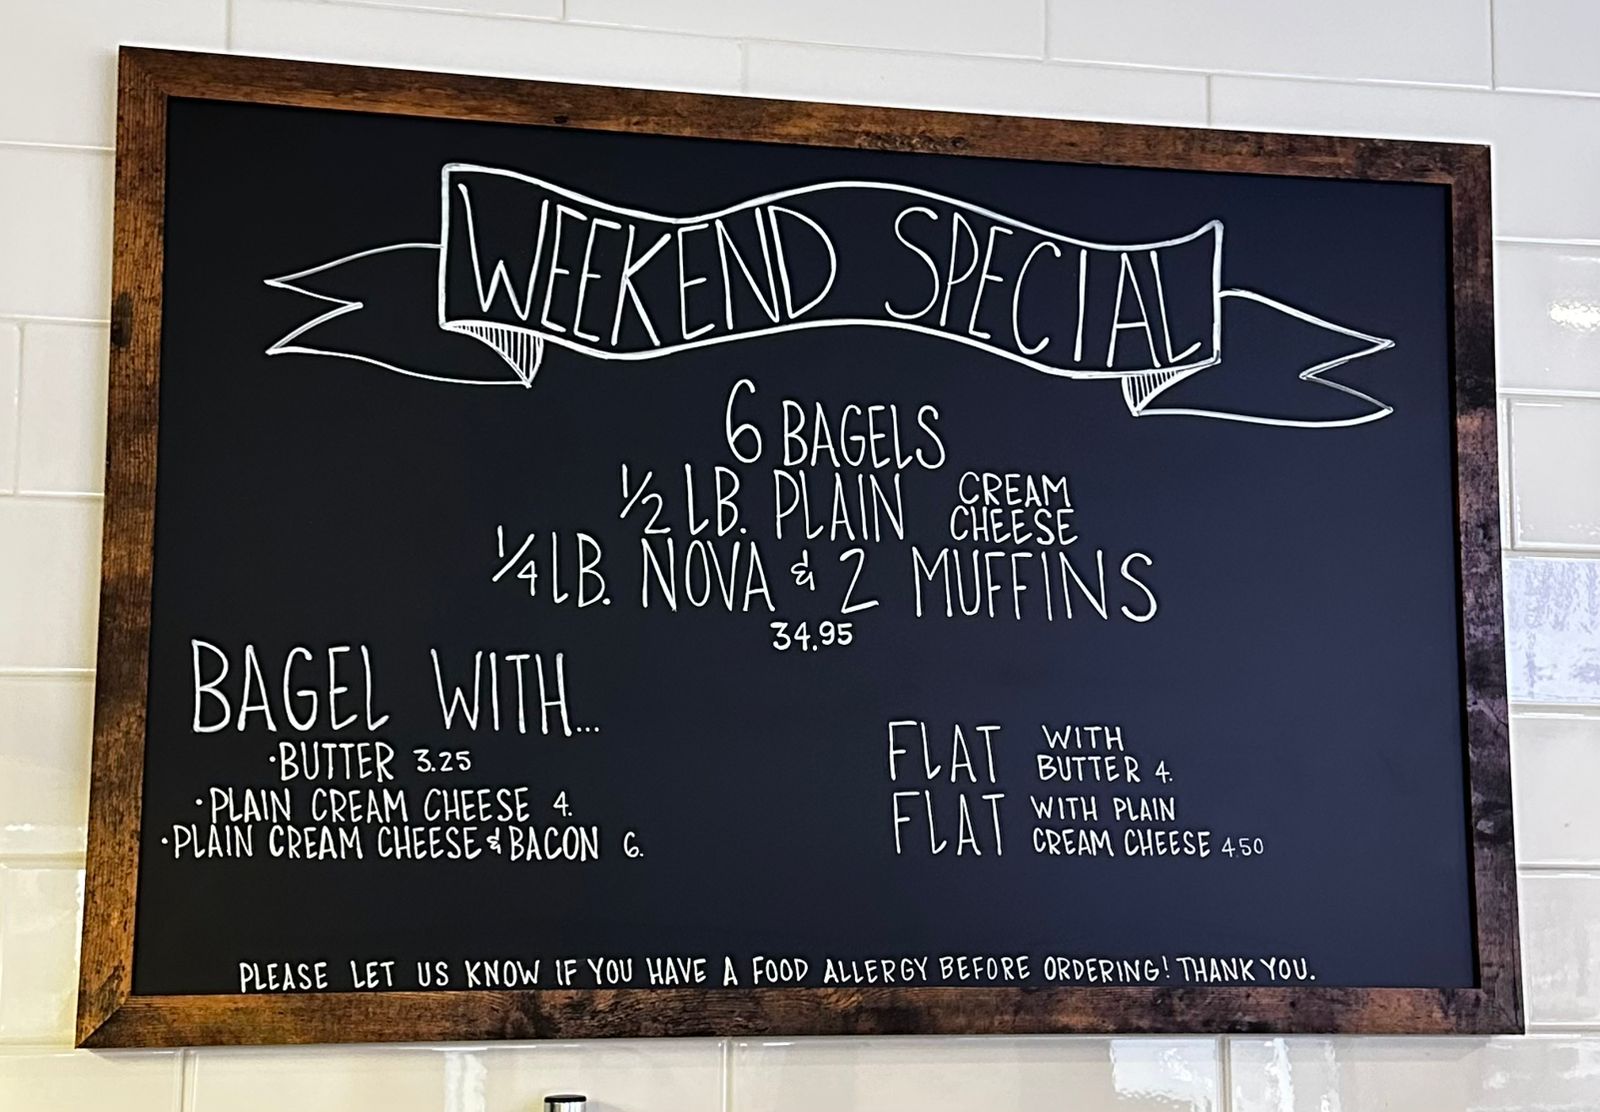 WEEKEND SPECIAL
6 BAGELS
1/2 LB. PLAIN CREAM CHEESE
1/4 LB. NOVA & 2 MUFFINS
34.95
BAGEL WITH...
·BUTTER 3.25
·PLAIN CREAM CHEESE 4.
·PLAIN CREAM CHEESE & BACON 6.
FLAT WITH BUTTER 4.
FLAT WITH PLAIN CREAM CHEESE 4.50
PLEASE LET US KNOW IF YOU HAVE A FOOD ALLERGY BEFORE ORDERING! THANK YOU.